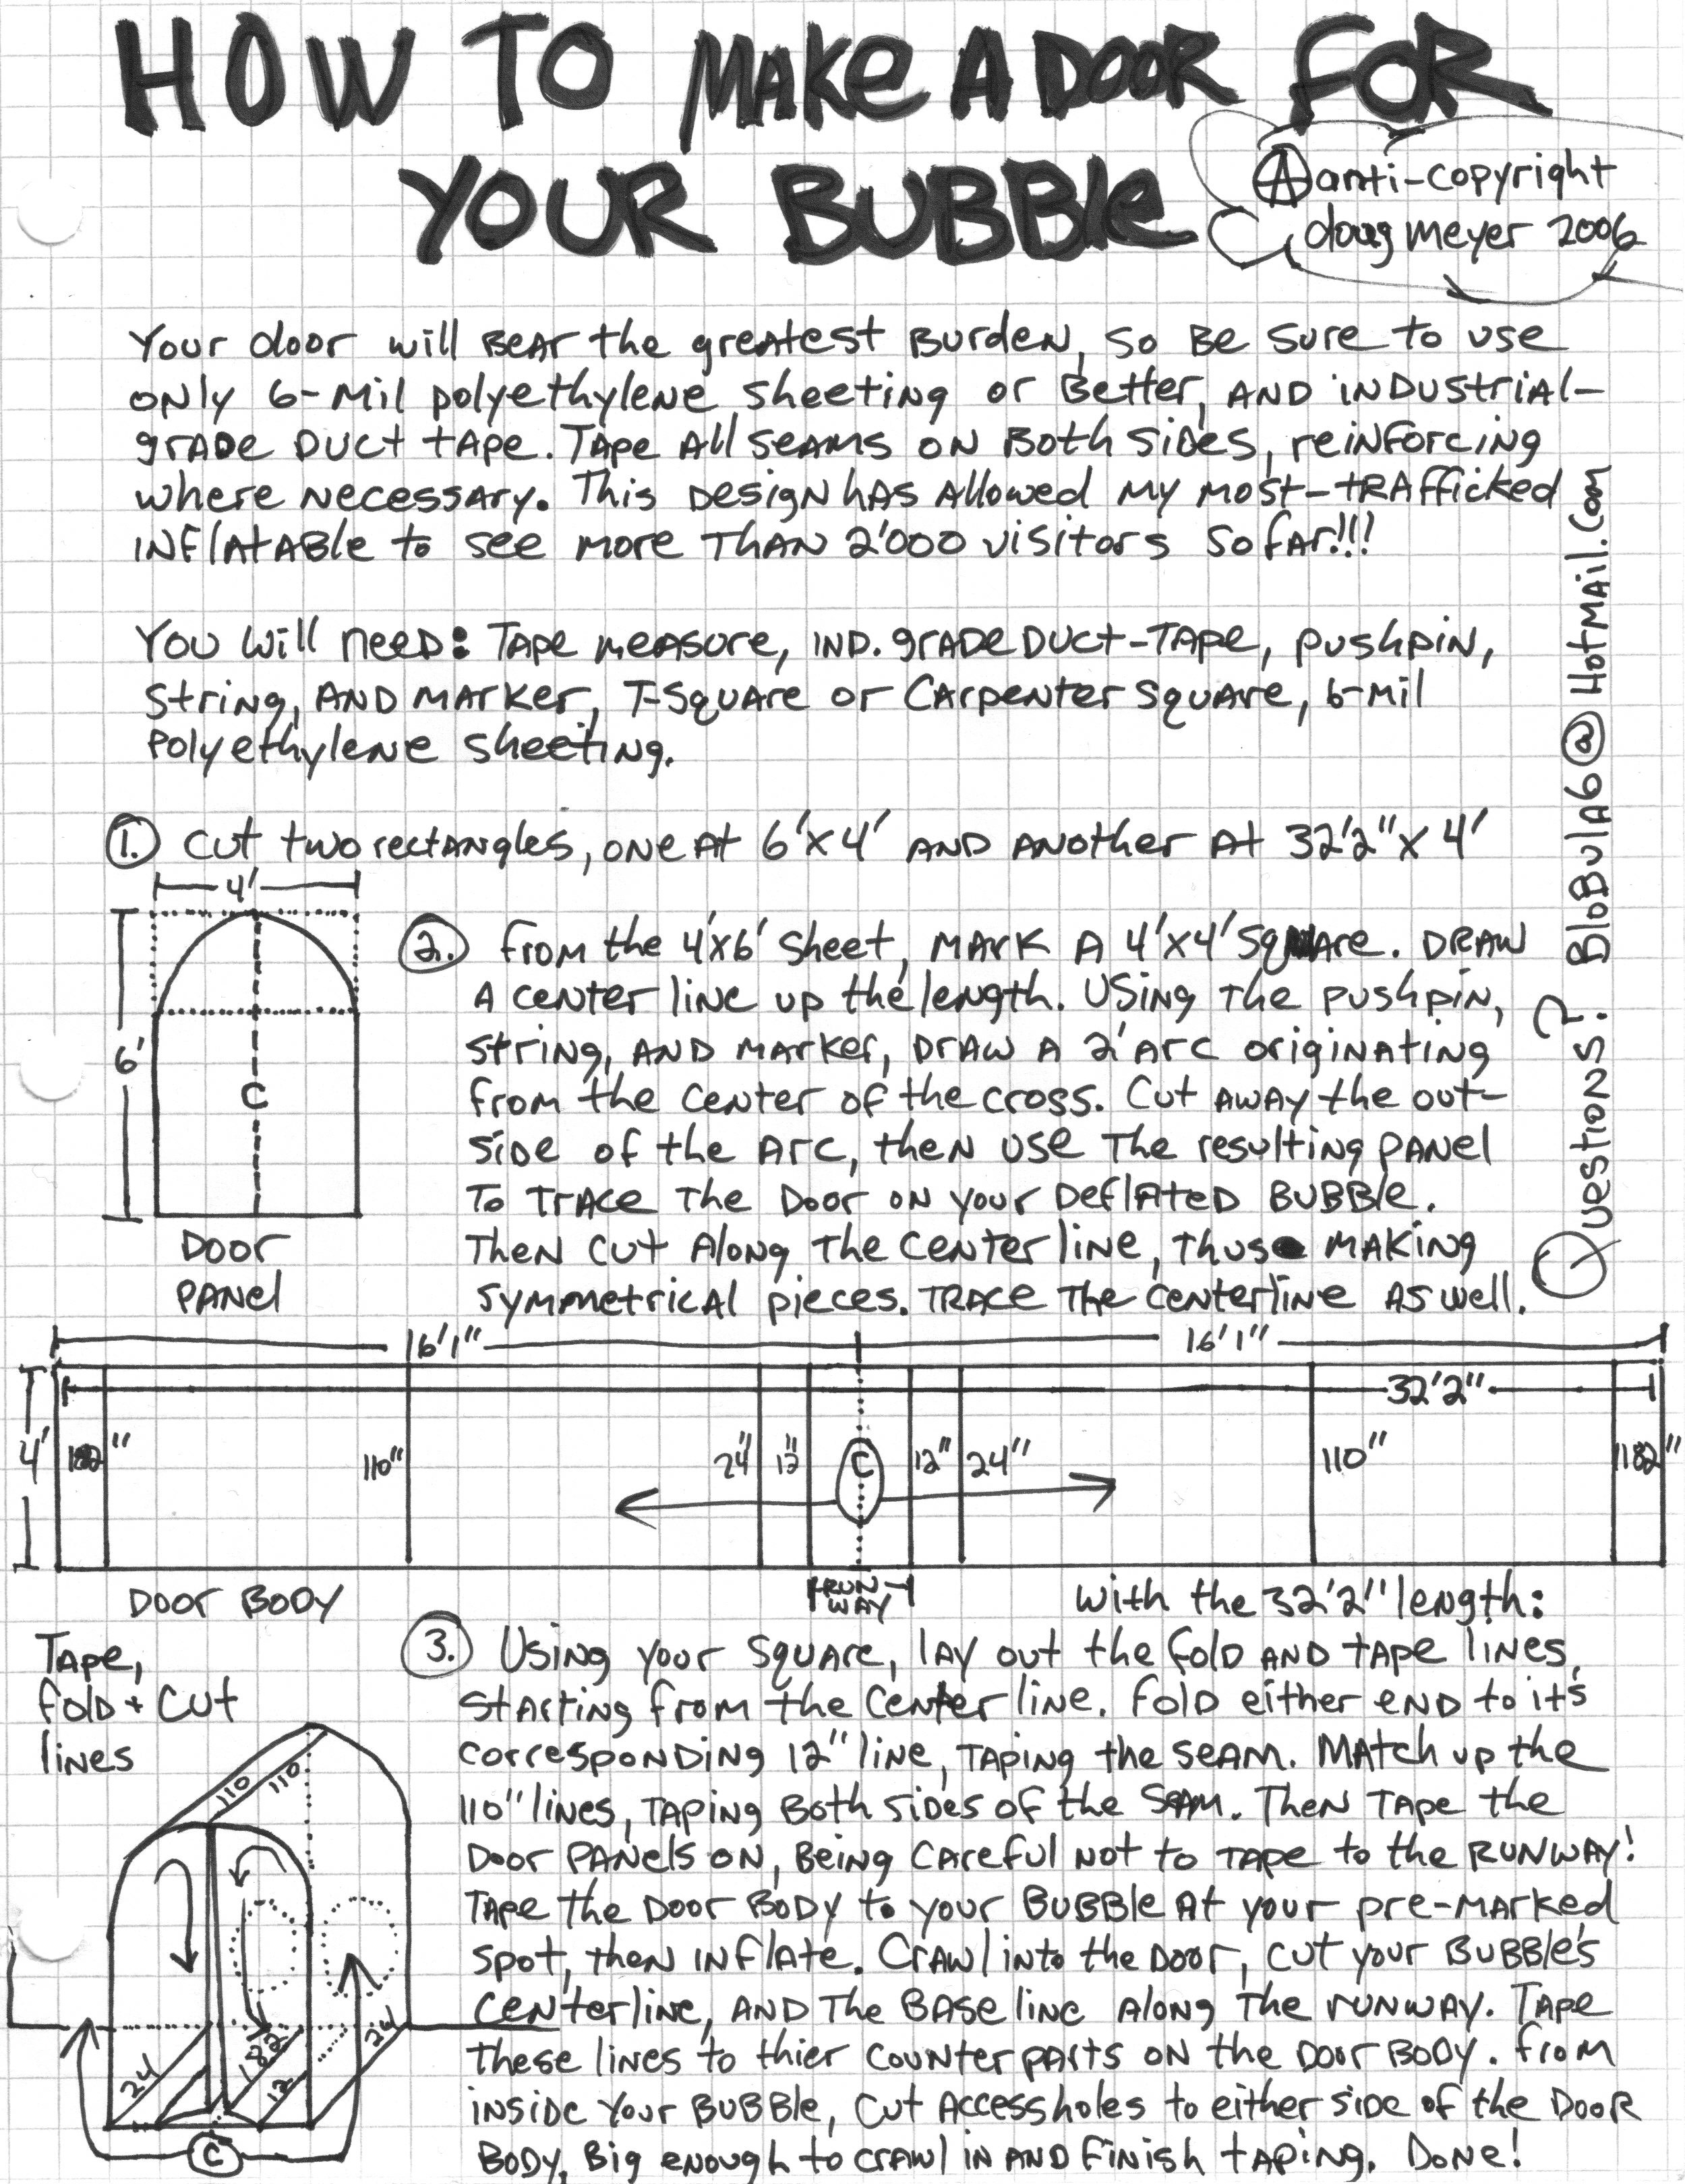 HOW TO MAKE A DOOR FOR
YOUR BUBBLE
Ⓐanti-copyright
doug meyer 2006
Your door will BEAR the greatest Burden, so Be sure to use
only 6-Mil polyethylene sheeting or Better, AND INDUStrial-
grADe DUCt tApe. TApe All seAMs ON Both siDes, reiNforciNg
where Necessary. This Design hAs Allowed My Most-trAfficked
INflAtABle to see More THAN 2'000 visitors so fAr!!!
You will need: TApe MeAsure, IND. grADe Duct-TApe, pushpin,
string, AND MArker, T-SquAre or CArpenter SquAre, 6-Mil
polyethylene sheeting.
1. Cut two rectAngles, one At 6'x4' AND ANother At 32'2"x 4'
4'
6'
C
DOOR
PANel
2. From the 4'x6' sheet, MArk A 4'x4' SquAre. DRAW
A center line up the length. Using the pushpin,
string, AND MArker, DRAW A 2' Arc originAting
from the center of the cross. Cut AWAY the out-
side of the Arc, then use the resulting pANel
To TrAce the Door on your DeflAteD BUBBle.
Then cut Along the centerline, thus MAKiNg
symmetricAl pieces. TRACE the centerline As well.
Questions? BloBulA6@HotMAil.Com
16'1" 16'1"
32'2"
4' 182" 110" 24" 12" C 12" 24" 110" 182"
DOOR BODY
RUN-
WAY
With the 32'2" length:
Tape,
fold + cut
lines
3. Using your square, lAy out the fold AND tApe lines,
stArting from the center line. Fold either end to it's
corresponding 12" line, tAping the seAM. MAtch up the
110" lines, tAping Both sides of the seAM. Then TApe the
Door PANels ON, Being CAreful not to TApe to the RUNWAY!
TApe the Door Body to your BUBBle At your pre-MArked
spot, then iNflAte. CrAwl into the Door, cut your BUBBle's
centerline, AND the BAse line Along the runway. TApe
these lines to thier counterpArts on the Door Body. From
inside your BUBBle, cut Access holes to either side of the Door
Body, Big enough to crAwl in AND finish tApiNg. Done!
110 110
24 182 12 24
C